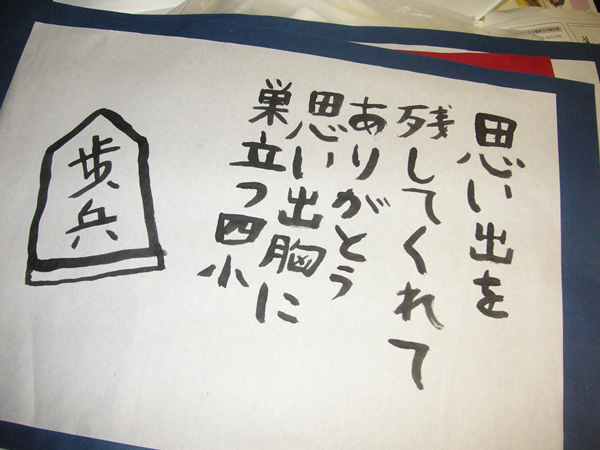 思い出を
残してくれて
ありがとう
思い出胸に
巣立つ四小
歩兵